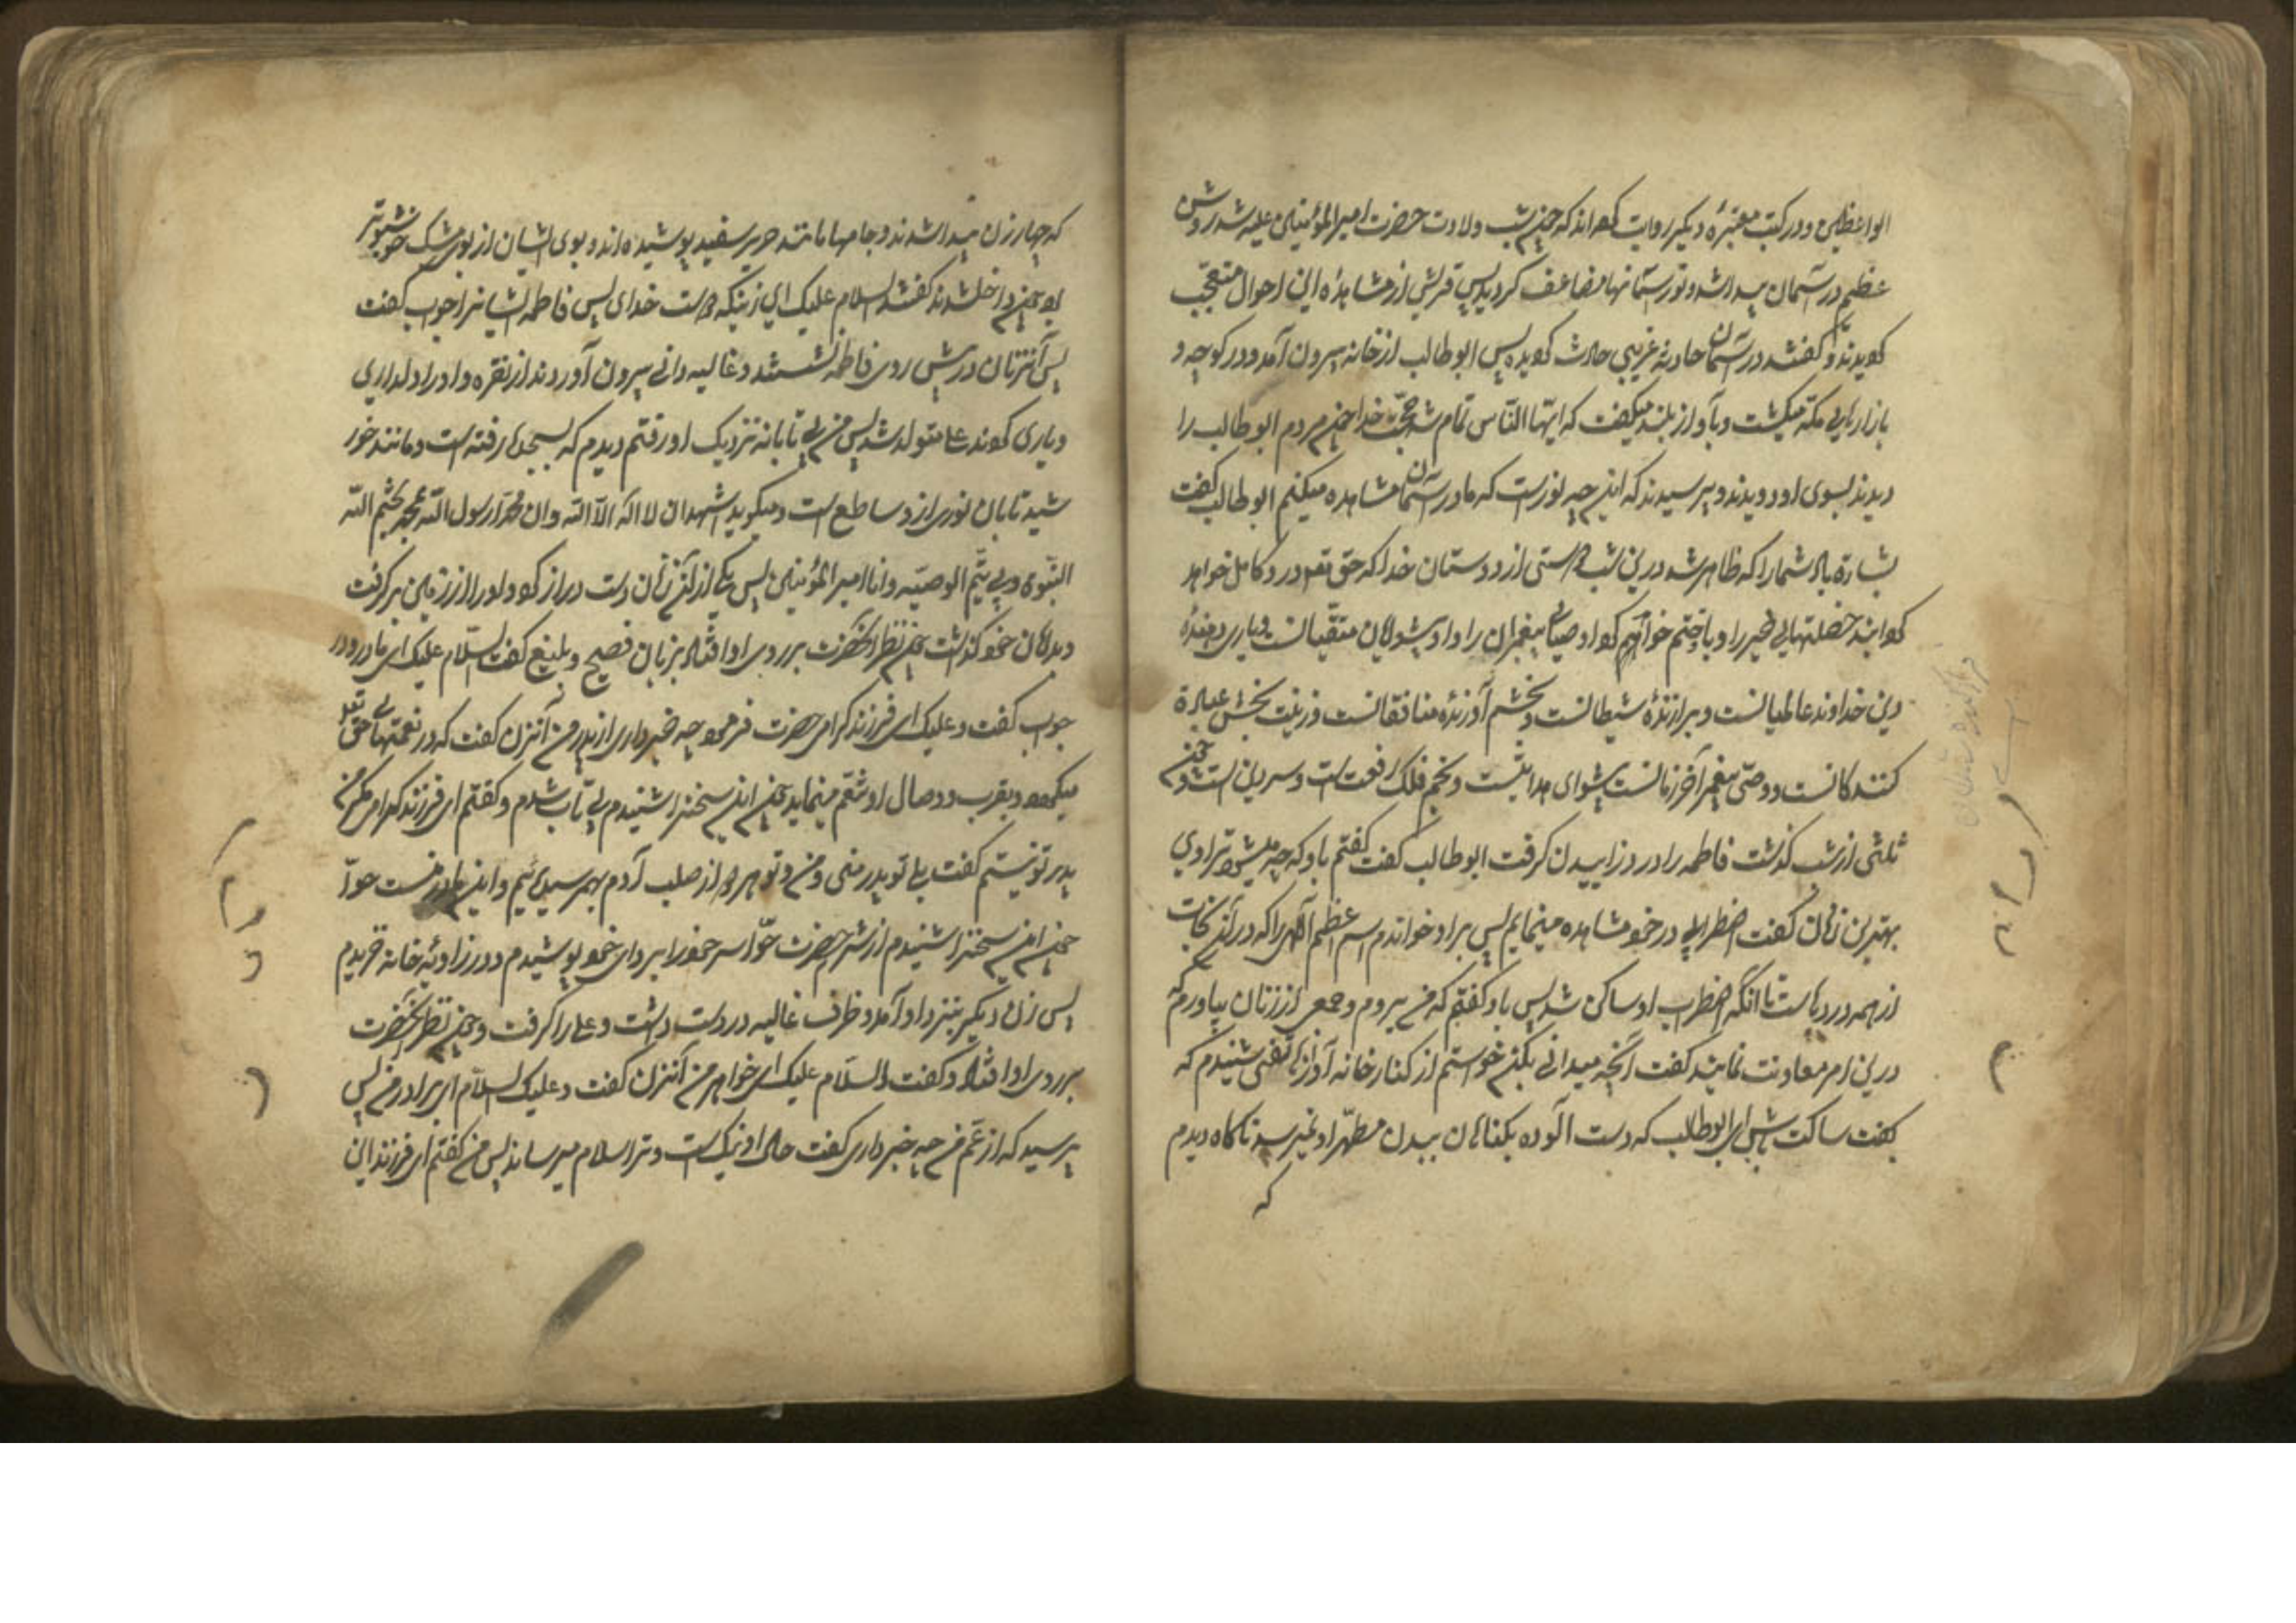 الواعظین و در کتب معتبرهٔ دیکر روایت کرده‌اند که چون شب ولادت حضرت امیرالمؤمنین علیه شد روشنی
عظیم در آسمان پیدا شد و نور ستارها مضاعف کردید پس قریش از مشاهدهٔ این احوال متعجب
کردیدند و گفتند در آسمان حادثه غریبی حادث کردیده پس ابوطالب از خانه بیرون آمد و در کوچه و
بازارهای مکه میکشت و بآواز بلند میکفت که ایها الناس تمام شد حجت خدا چون مردم ابوطالب را
دیدند بسوی او دویدند و پرسیدند که این چه نورست که ما در آسمان مشاهده میکنیم ابوطالب کفت
بشارة باد شما را که ظاهر شد درین شب دوستی از دوستان خدا که حق تعالی در او کامل خواهد
کردانید خصلتهای خیر را و باو ختم خواهد کرد اوصیای پیغمبران را و او پیشوای متقیانست و یاری دهندهٔ
دین خداوند عالمیانست و براندازندهٔ شیطانست و بخشم آورندهٔ منافقانست و زینت بخش عبادة
کنندکانست و وصی پیغمبر آخر زمانست پیشوای هدایتست و نجم فلک رفعت است و سر دین است و چون
ثلثی از شب کذشت فاطمه را درد زاییدن کرفت ابوطالب کفت کفتم باو که چه میشود ترا ای
بهترین زنان کفت اضطرابی در خود مشاهده مینمایم پس بر او خواندم اسم اعظم الهی را که در آن نجات
از همه دردهاست تا آنکه اضطراب او ساکن شد پس باو کفتم که من بروم و جمعی از زنان بیاورم که
درین امر معاونت نمایند کفت آنچه میدانی بکن چون خواستم از کنار خانه آواز هاتفی شنیدم که
کفت ساکت باش ای ابوطالب که دست آلوده بکناهان ببدن مطهر او نمیرسد ناکاه دیدم
که
که چهار زن پیدا شدند و جامها مانند حریر سفید پوشیده‌اند و بوی ایشان از بوی مشک خوشبوتر
بود چون داخل شدند کفتند السلام علیک ای زنیکه دوست خدای پس فاطمه ایشانرا جواب کفت
پس آنزنان در پیش روی فاطمه نشستند و غالیه دانی بیرون آوردند از نقره و او را دلداری
و یاری کردند تا علی متولد شد پس من بی تابانه نزدیک او رفتم دیدم که بسجده رفته است و مانند خور
شید تابان نوری از او ساطع است و میکوید اشهد ان لا اله الا الله و ان محمدا رسول الله بمحمد یختم الله
النبوه و بی یتم الوصیه و انا امیرالمؤمنین پس یکی از آن زنان دست دراز کرد و او را از زمین بر کرفت
و بدامان خود کذاشت چون نظر آنحضرت بر روی او افتاد بزبان فصیح و بلیغ کفت السلام علیک ای مادر و در
جواب کفت و علیک ای فرزند کرامی حضرت فرمود چه خبر داری از پدر من آنزن کفت که در نعمتهای حق تعالی
میکردد و بقرب وصال او تنعم مینماید چون این سخنرا شنیدم بی تاب شدم و کفتم ای فرزند کرامی مکر من
پدر تو نیستم کفت بلی تو پدر منی و من و تو هر دو از صلب آدم بهم رسیده‌ایم و این مادر منست حوا
چون این سخنرا شنیدم از شرم حضرت حوا سر خود را بردای خود پوشیدم و در زاویهٔ خانه خزیدم
پس زن دیکر بنزد او آمد و ظرف غالیه در دست داشت و علی را کرفت و چون نظر آنحضرت
بر روی او افتاد و کفت السلام علیک ای خواهر من آنزن کفت و علیک السلام ای برادر من پس
پرسید که از عم من چه خبر داری کفت حال او نیک است و ترا سلام میرساند پس من کفتم ای فرزند این